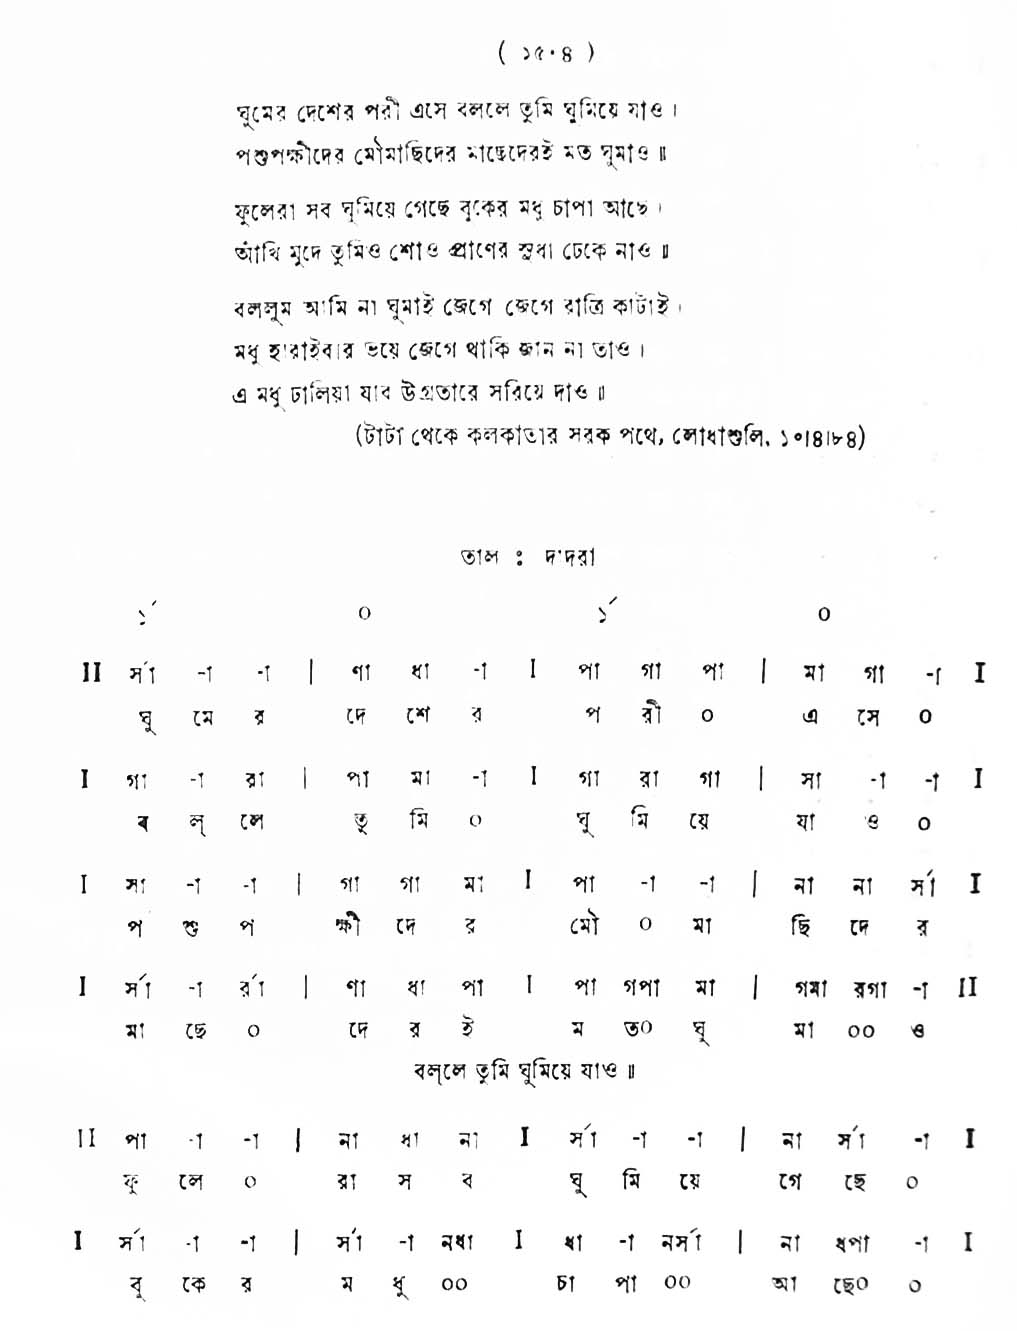 ( ১৫·৪ )
ঘুমের দেশের পরী এসে বললে তুমি ঘুমিয়ে যাও।
পশুপক্ষীদের মৌমাছিদের মাছেদেরই মত ঘুমাও॥
ফুলেরা সব ঘুমিয়ে গেছে বুকের মধু চাপা আছে।
আঁখি মুদে তুমিও শোও প্রাণের সুধা ঢেকে নাও॥
বললুম আমি না ঘুমাই জেগে জেগে রাত্রি কাটাই।
মধু হারাইবার ভয়ে জেগে থাকি জান না তাও।
এ মধু ঢালিয়া যাব উগ্রতারে সরিয়ে দাও॥
(টাটা থেকে কলকাতার সরক পথে, লোধাশুলি, ১০|৪|৮৪)
তাল : দাদরা
১́ ০ ১́ ০
II র্সা -া -া | ণা ধা -া I পা গা পা | মা গা -া I
ঘু মে র দে শে র প রী ০ এ সে ০
I গা -া রা | পা মা -া I গা রা গা | সা -া -া I
ব ল্ লে তু মি ০ ঘু মি য়ে যা ও ০
I সা -া -া | গা গা মা I পা -া -া | না না র্সা I
প শু প ক্ষী দে র মৌ ০ মা ছি দে র
I র্সা -া র্রা | ণা ধা পা I পা গপা মা | গমা রগা -া II
মা ছে ০ দে র ই ম ত০ ঘু মা ০০ ও
বল্লে তুমি ঘুমিয়ে যাও॥
II পা -া -া | না ধা না I র্সা -া -া | না র্সা -া I
ফু লে ০ রা স ব ঘু মি য়ে গে ছে ০
I র্সা -া -া | র্সা -া নধা I ধা -া নর্সা | না ধপা -া I
বু কে র ম ধু ০০ চা পা ০০ আ ছে০ ০